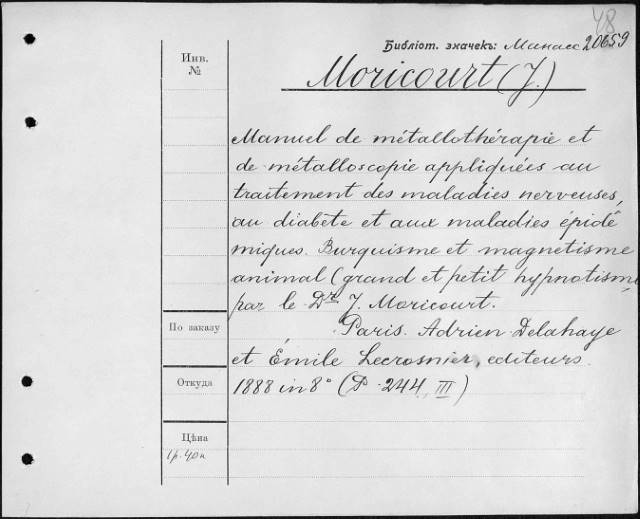 48
Библіот. значекъ: Манасс 20659
Инв.
№
Moricourt (J.)
Manuel de métallothérapie et
de métalloscopie appliquées au
traitement des maladies nerveuses,
au diabète et aux maladies épidé
miques. Burquisme et magnétisme
animal (grand et petit hypnotisme
par le Dr J. Moricourt.
По заказу
Paris. Adrien Delahaye
et Émile Lecrosnier, editeurs.
Откуда
1888 in 8° (P. 244, III)
Цѣна
1р. 40к